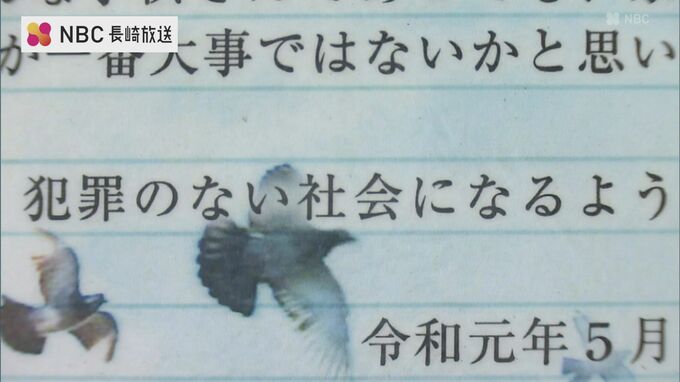 NBC 長崎放送
NBC
が一番大事ではないかと思い
犯罪のない社会になるよう
令和元年5月